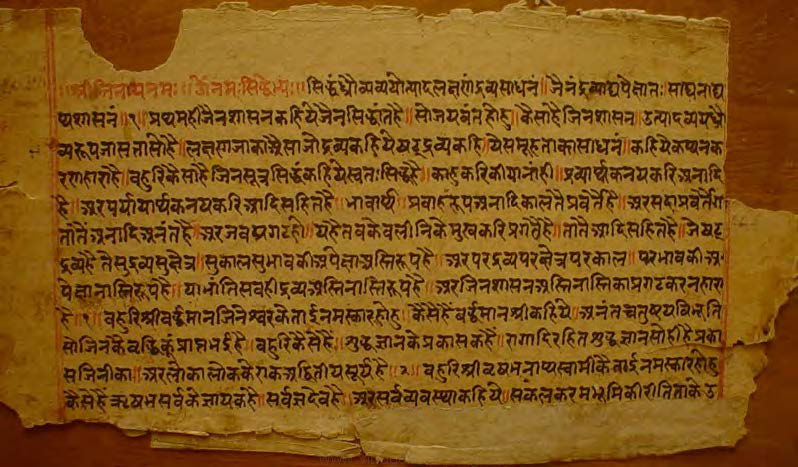 श्रीजिनायनमः॥ ॐनमःसिद्धेभ्यः॥ सिद्धंध्रौव्यव्ययोत्पादलक्षणंद्रव्यसाधनं॥जैनंद्रव्याद्यपेक्षातः साद्यनाद्य
थशासनं॥१॥ प्रथमहीजैनशासनकहियेजैनसिद्धांतहै॥सोजयवंतहोहु॥कैसोहैजिनशासन॥उत्पादव्ययध्रौ
व्यरूपजासतासोहै॥लक्षणजाकाऔसाजोद्रव्यकहियेषट्द्रव्यकहियेसमूहताकासाधनं॥कहियेकथनक
रणहाराहै॥बहुरिकैसोहैजिनसूत्रसिद्धंकहियेस्वतःसिद्धहै॥काहूकरिकीयानाही॥द्रव्यार्थकनयकरिअनादि
है॥अरपर्यायार्थकनयकरिआदिसहितहै॥भावार्थ॥प्रवाहरूपअनादिकालतैप्रवर्तैहै॥अरसदाप्रवर्तैगा
तातैअनादिअनंतहै॥अरजबप्रगटही॥यहैतबकेवलीनिकेमुखकरिप्रगटैहै॥तातैआदिसहितहै॥जेषट्
द्रव्यहैतेसुद्रव्यसुक्षेत्र॥सुकालसुभावकीअपेक्षाअस्तिरूपहै॥अरपरद्रव्यपरक्षेत्रपरकाल॥परभावकीअ
पेक्षानास्तिरूपहै॥याभांतिसबहीद्रव्यअस्तिनास्तिरूपहै॥अरजिनशासनअस्तिनास्तिकाप्रगटकरनहारा
है॥१॥बहुरिश्रीवर्द्धमानजिनेश्वरकेतांईनमस्कारहोहु॥कैसेहैंवर्द्धमानश्रीकहिये॥अनंतचतुष्टयविभूति
सोजिनकेवृद्धिकूंप्राप्तभईहै॥बहुरिकैसेहैं॥शुद्धज्ञानकेप्रकासकहैं॥रागादिरहितशुद्धज्ञानसोहीहैप्रका
सजिनीका॥अरलोकालोककेएकअद्वितीयसूर्यहै॥२॥ बहुरिश्रीवृषभनाथस्वामीकैतांईनमस्कारहोहु
कैसेहैऋषभसर्वकेज्ञायकहै॥सर्वज्ञदेवहै॥अरसर्वव्यवस्थाकहिये॥सकलकरमभूमिकीरीतितांकेउ